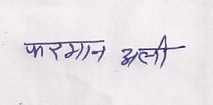 फरमान अली